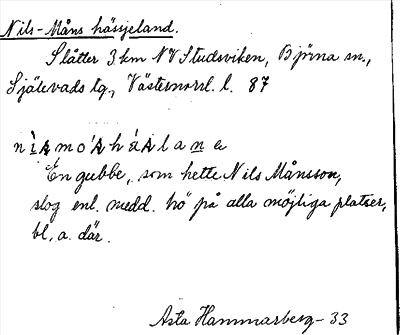 Nils-Måns hässjeland.
Slåtter 3 km NV Studsviken, Björna sn.,
Själevads tg., Västernorrl. l. 87
En gubbe, som hette Nils Månsson,
slog enl. medd. hö på alla möjliga platser,
bl. a. där.
Asta Hammarberg - 33